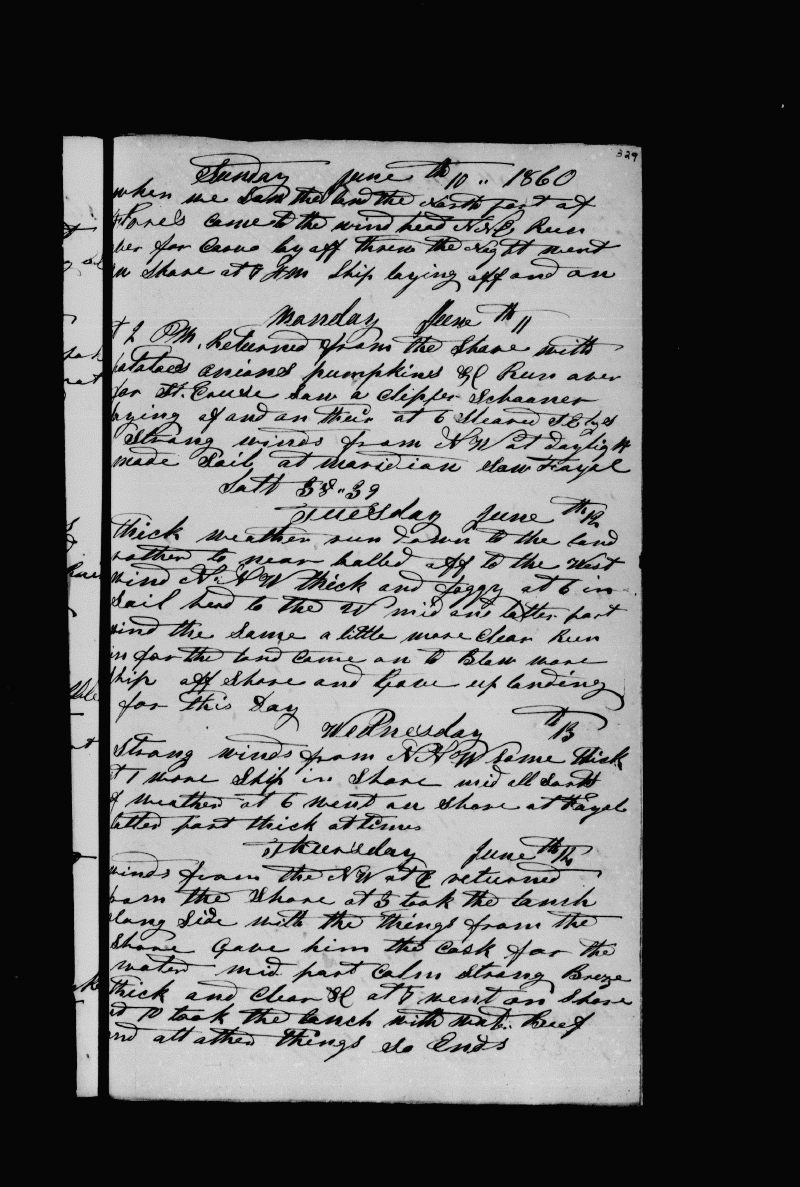 329
Sunday June th 10 " 1860
when we Saw the land the North part of
Flores came to the wind head N.N.E. Run
over for Corvo lay off threw the Night went
on Shore at 7 Am Ship laying off and on
Monday June th 11
at 2 PM. Returned from the Shore with
potatoes onions pumpkins &C Run over
for St. Cruse Saw a Clipper Schooner
laying of and on their at 6 Steared S.E
Strong winds from N W at Daylight
made Sail, at maridian Saw Fayal
Latt 38 " 39
Tuesday June th 12
thick weather run down to the land
rather to near halled off to the West
wind N.N.W thick and foggy at 6 in
Sail head to the W mid and latter part
wind the Same a little more Clear Run
in for the land Came on to Blow wore
Ship off Shore and Gave up landing
for this Day
Wednesday th 13
Strong winds from N N W Some thick
at 1 wore Ship in Shore mid all Sorts
of weather at 6 went on Shore at Fayal
latter part thick at times
Thursday June th 14
winds from the N W at returned
from the Shore at 3 took the lanch
along Side with the things from the
Shore Gave him the Cask for the
water mid part Calm Strong Breze
thick and Clear &C at 7 went on Shore
at 10 took the lanch with wat. Beef
and all other things So Ends